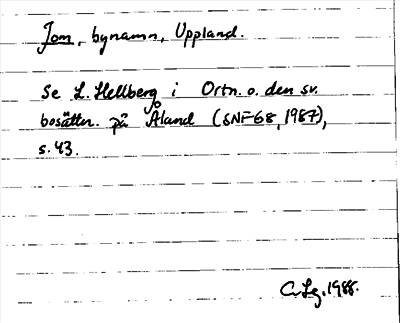 Jom, bynamn, Uppland.
Se L. Hellberg i Ortn. o. den sv.
bosättn. på Åland (SNF 68, 1987),
s. 43.
1988.